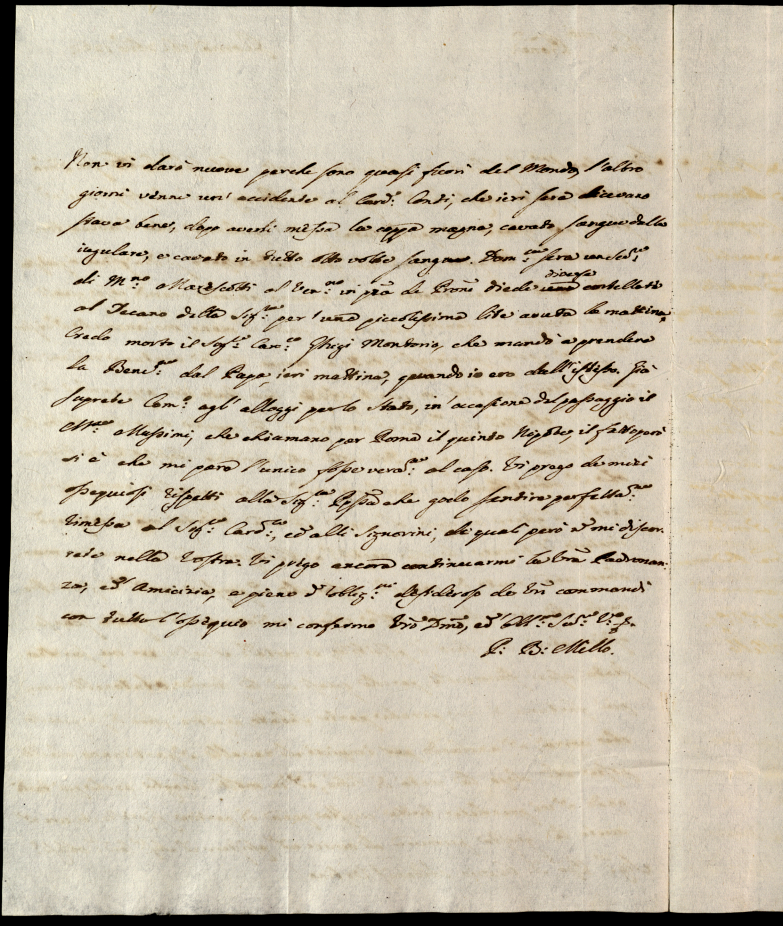 Non vi darò nuove perche sono quasi fuori del Mondo, l'altro
giorni venne un' accidente al Card: Conti, che ieri sera dicevano
stava bene, dopo aversi messa la cappa magna, cavato sangue dalla
iugulare, e cavato in tutto otto volte sangue. Dom:ca sera un
di M:no Marescotti al in diede diverse coltellate
al Decano della per una piccolissima lite avuta la mattina,
Credo morto il Ghigi Montorio, che mandò a prendere
la Bened:ne dal Papa, ieri mattina, quando io ero dall' istesso. Fà
Com:o agl' alloggi per lo Stato, in' occasione del passaggio il
Massimi, che chiamano per Roma il quinto Nipote, il fatto però
si è che mi pare l'unico fosse vera:te al caso. Vi prego de miei
ossequiosi rispetti alla Sig:ra che godo sentire perfetta:te
rimessa al Sig:r ed alli Signorini, de quali però ñ mi discor-
rete nella Vostra. Vi prego ancora continuarmi la vrã Padronan-
za, ed Amicizia, e pieno d' obblig:ni desideroso de vrĩ commandi
con tutto l'ossequio mi confermo
P: B: Mello.